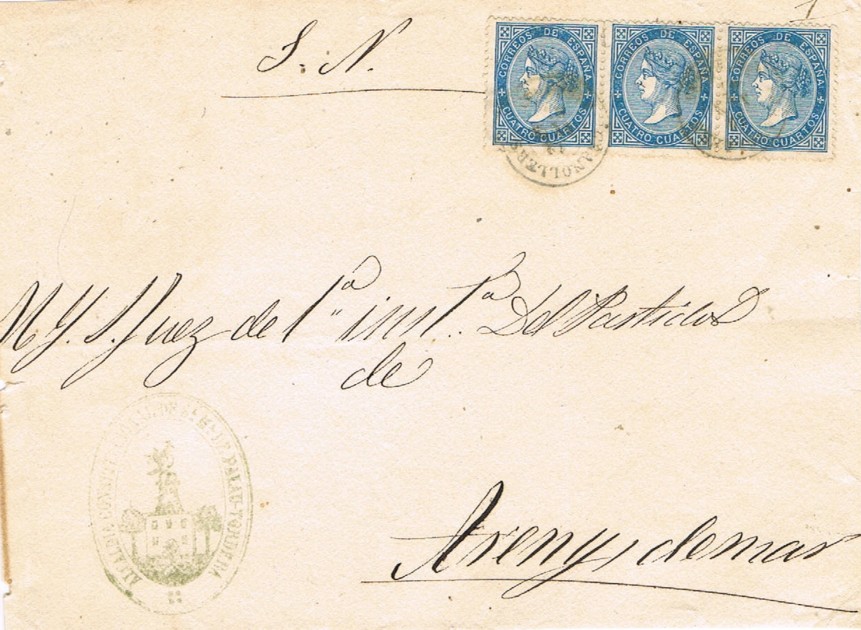 1
S. N.
CORREOS DE ESPAÑA
CUATRO CUARTOS
CORREOS DE ESPAÑA
CUATRO CUARTOS
CORREOS DE ESPAÑA
CUATRO CUARTOS
GRANOLLERS
M. Y. S. Juez de 1ª inst.ª Del Partido
de
Arenys de mar
ALCALDIA PALAU-TORDERA